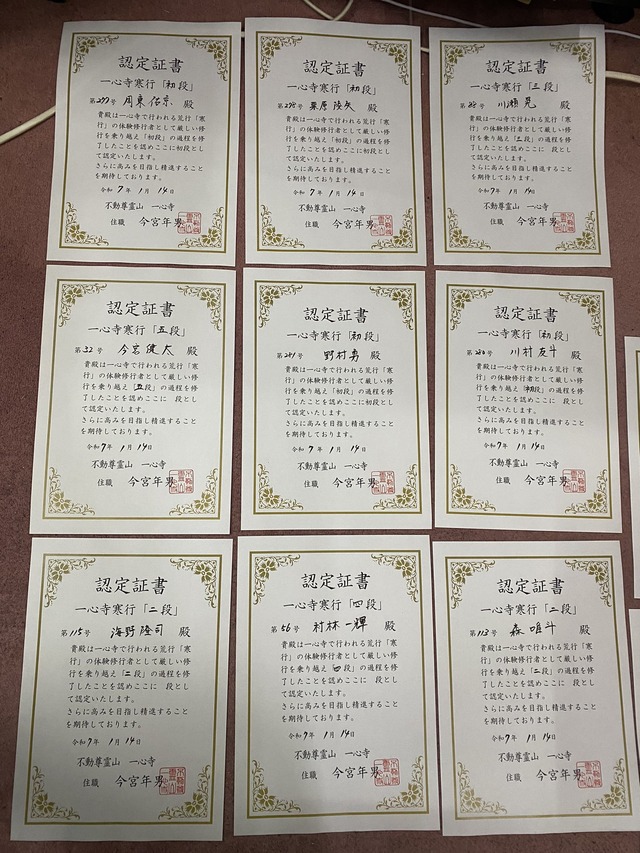 認定証書
一心寺寒行「初段」
第277号 周東佑京 殿
貴殿は一心寺で行われる荒行「寒
行」の体験修行者として厳しい修
行を乗り越え「初段」の過程を修
了したことを認めここに初段とし
て認定いたします。
さらに高みを目指し精進すること
を期待しております。
令和7年1月14日
不動尊霊山 一心寺
住職 今宮年男
認定証書
一心寺寒行「初段」
第278号 栗原陵矢 殿
貴殿は一心寺で行われる荒行「寒
行」の体験修行者として厳しい修
行を乗り越え「初段」の過程を修
了したことを認めここに初段とし
て認定いたします。
さらに高みを目指し精進すること
を期待しております。
令和7年1月14日
不動尊霊山 一心寺
住職 今宮年男
認定証書
一心寺寒行「三段」
川瀬晃 殿
貴殿は一心寺で行われる荒行「寒
行」の体験修行者として厳しい修
行を乗り越え「三段」の過程を修
了したことを認めここに 段とし
て認定いたします。
さらに高みを目指し精進すること
を期待しております。
令和7年1月14日
不動尊霊山 一心寺
住職 今宮年男
認定証書
一心寺寒行「五段」
第32号 今宮健太 殿
貴殿は一心寺で行われる荒行「寒
行」の体験修行者として厳しい修
行を乗り越え「五段」の過程を修
了したことを認めここに 段とし
て認定いたします。
さらに高みを目指し精進すること
を期待しております。
令和7年1月14日
不動尊霊山 一心寺
住職 今宮年男
認定証書
一心寺寒行「初段」
野村勇 殿
貴殿は一心寺で行われる荒行「寒
行」の体験修行者として厳しい修
行を乗り越え「初段」の過程を修
了したことを認めここに初段とし
て認定いたします。
さらに高みを目指し精進すること
を期待しております。
令和7年1月14日
不動尊霊山 一心寺
住職 今宮年男
認定証書
一心寺寒行「初段」
第280号 川村友斗 殿
貴殿は一心寺で行われる荒行「寒
行」の体験修行者として厳しい修
行を乗り越え「初段」の過程を修
了したことを認めここに 段とし
て認定いたします。
さらに高みを目指し精進すること
を期待しております。
令和7年1月14日
不動尊霊山 一心寺
住職 今宮年男
認定証書
一心寺寒行「二段」
第115号 海野隆司 殿
貴殿は一心寺で行われる荒行「寒
行」の体験修行者として厳しい修
行を乗り越え「二段」の過程を修
了したことを認めここに 段とし
て認定いたします。
さらに高みを目指し精進すること
を期待しております。
令和7年1月14日
不動尊霊山 一心寺
住職 今宮年男
認定証書
一心寺寒行「四段」
第56号 村林一輝 殿
貴殿は一心寺で行われる荒行「寒
行」の体験修行者として厳しい修
行を乗り越え「四段」の過程を修
了したことを認めここに 段とし
て認定いたします。
さらに高みを目指し精進すること
を期待しております。
令和7年1月14日
不動尊霊山 一心寺
住職 今宮年男
認定証書
一心寺寒行「二段」
第113号 森唯斗 殿
貴殿は一心寺で行われる荒行「寒
行」の体験修行者として厳しい修
行を乗り越え「二段」の過程を修
了したことを認めここに 段とし
て認定いたします。
さらに高みを目指し精進すること
を期待しております。
令和7年1月14日
不動尊霊山 一心寺
住職 今宮年男